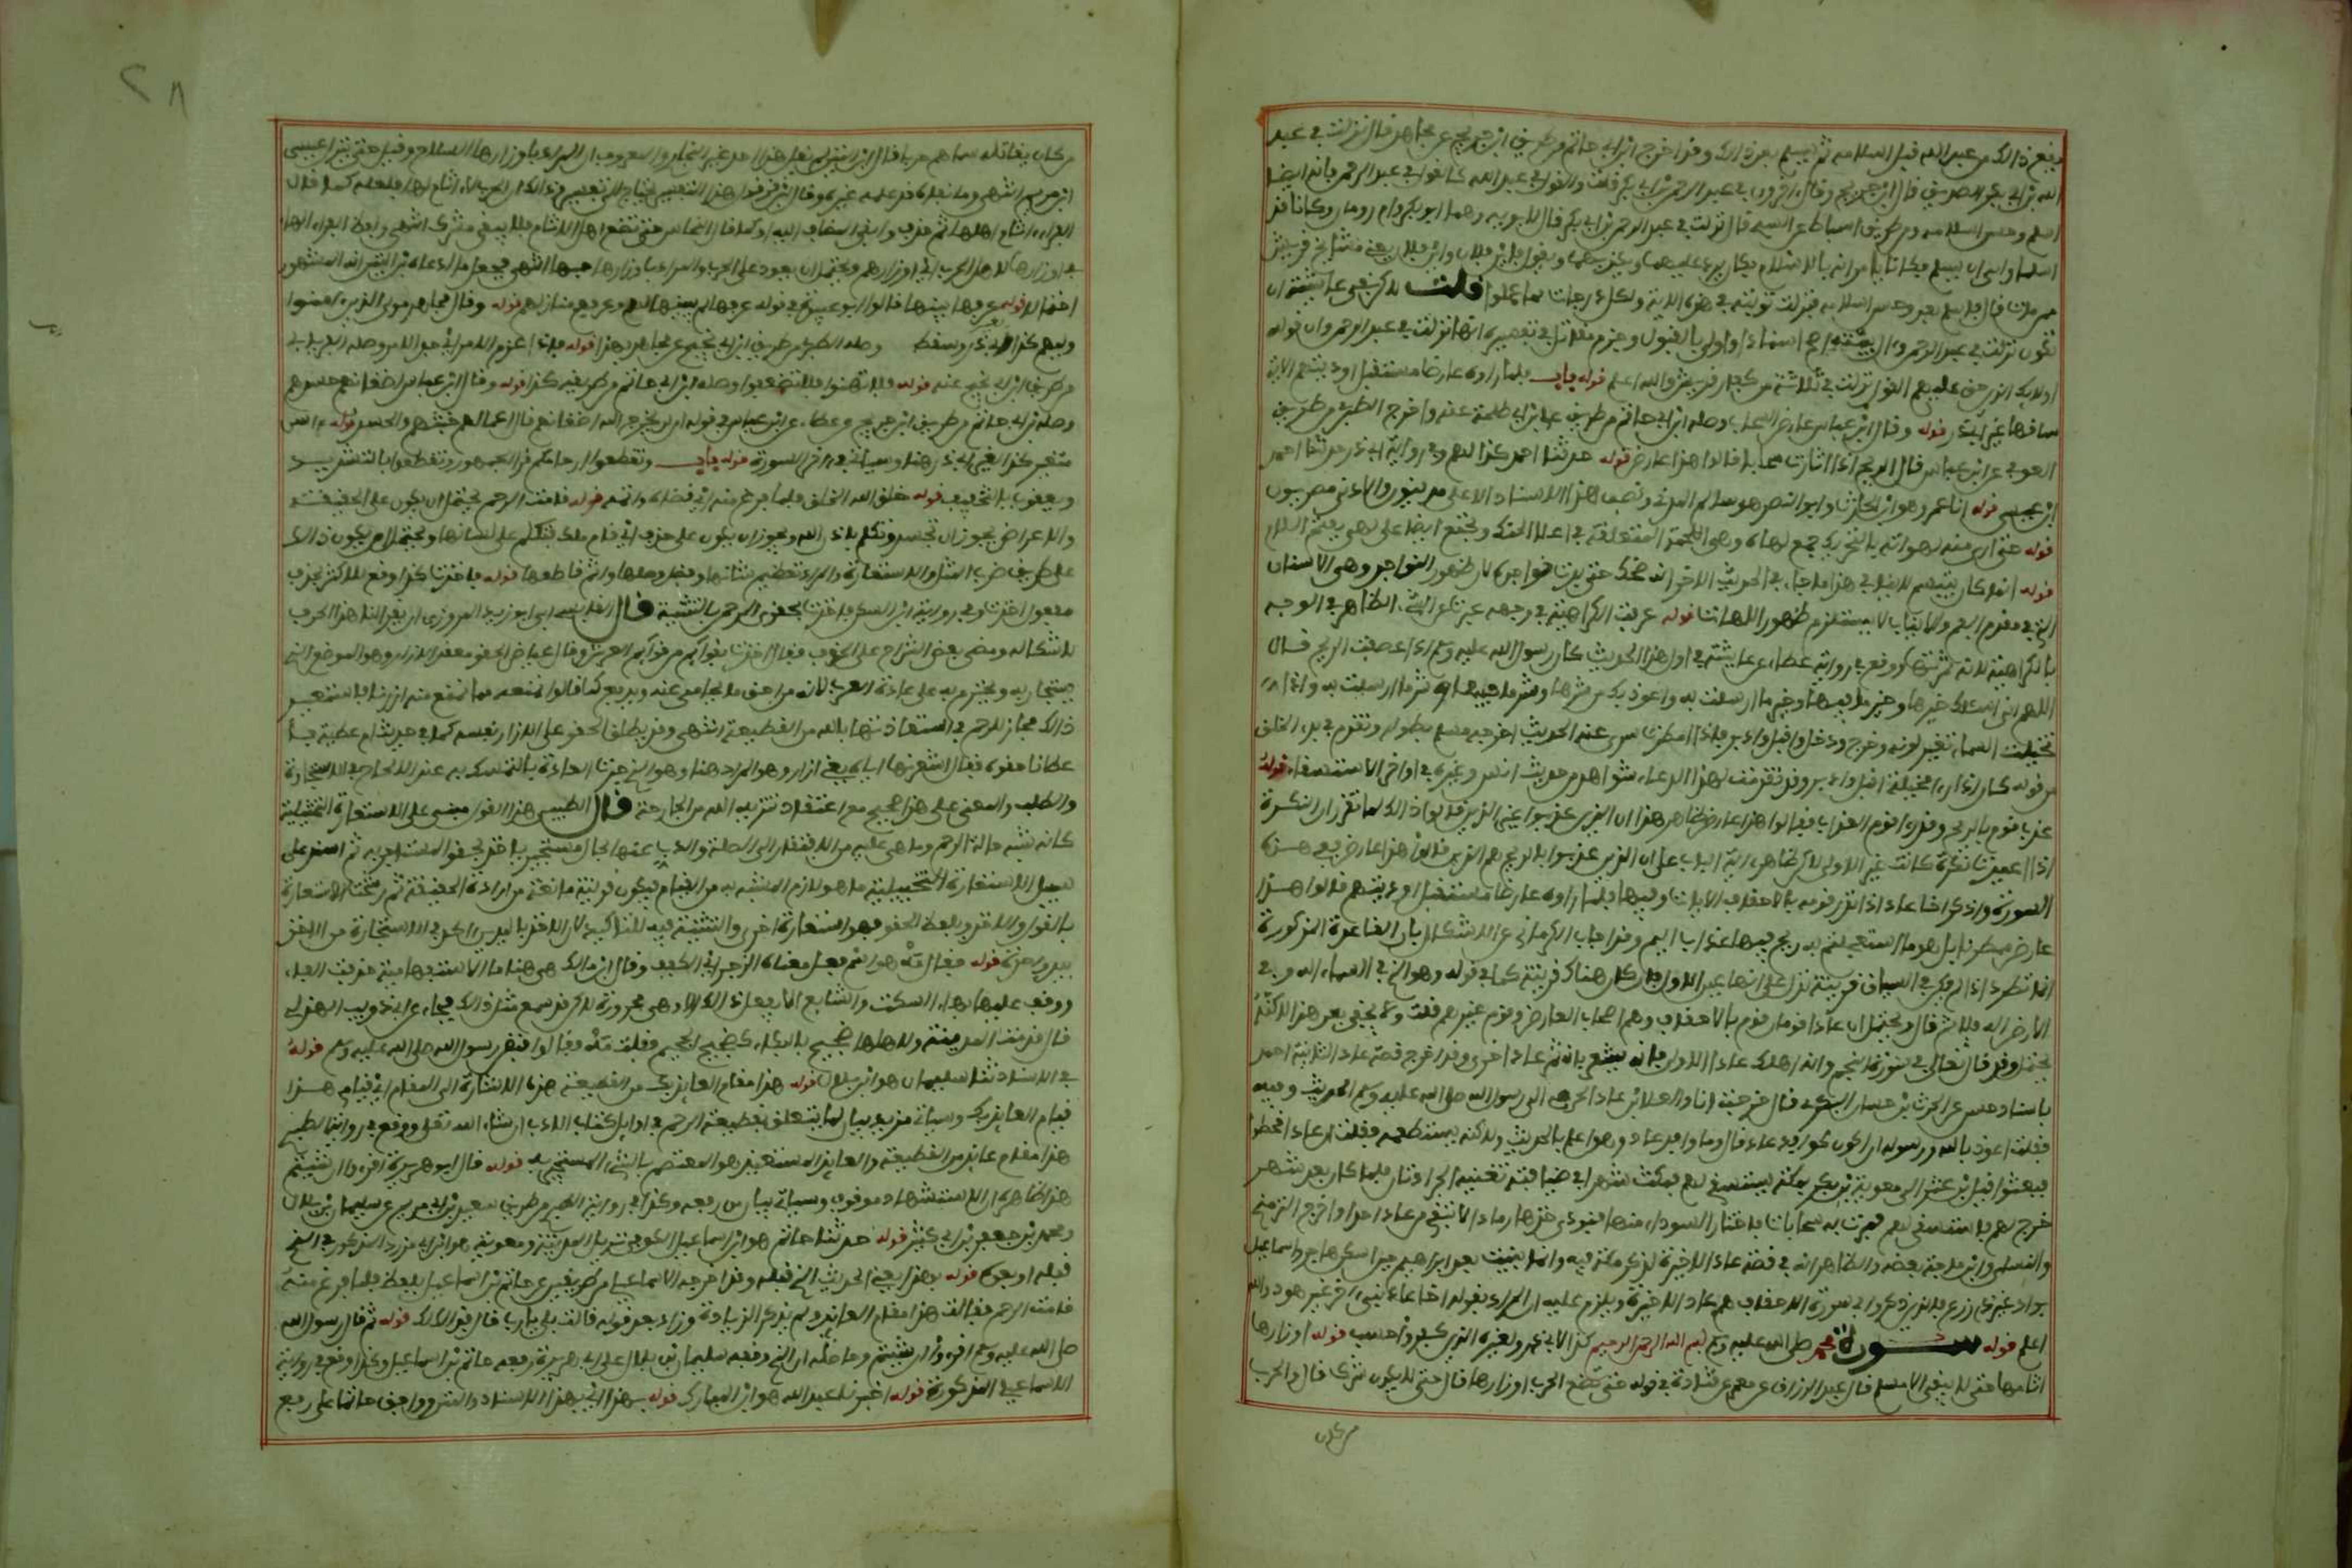 يقع ذالك من عبد الله قبل اسلامه ثم يسلم بعد ذالك وقد اخرج ابن ابي حاتم من طريق ابن جريج عن مجاهد قال نزلت في عبد
الله بن ابي بكر الصديق قال ابن جريج وقال اخرون في عبد الرحمن بن ابي بكر قلت والقول في عبد الله كالقول في عبد الرحمن فانه ايضا
اسلم وحسن اسلامه ومن طريق اسباط عن السدي قال نزلت في عبد الرحمن بن ابي بكر قال لابويه وهما ابو بكر وام رومان وكانا قد
اسلما وابى ان يسلم فكانا يامرانه بالاسلام فكان يرد عليهما ويكذبهما ويقول فاين فلان واين فلان يعني مشايخ قريش
ممن مات قال فاسلم بعد وحسن اسلامه فنزلت توبته في هذه الاية ولكل درجات مما عملوا قلت لاكن نفي عائشة ان
تكون نزلت في عبد الرحمن وال بيته اصح اسنادا واولى بالقبول وجزم مقاتل في تفسيره انها نزلت في عبد الرحمن وان قوله
اولايك الذين حق عليهم القول نزلت في ثلاثة من كفار قريش والله اعلم قوله باب فلما راوه عارضا مستقبل اوديتهم الاية
ساقها غير ابي ذر قوله وقال ابن عباس عارض السحاب وصله ابن ابي حاتم من طريق علي بن ابي طلحة عنه واخرج الطبري من طريق
العوفي عن ابن عباس قال الريح اذا اثارت سحابا قالوا هذا عارض قوله حدثنا احمد كذا لهم وفي رواية ابي ذر حدثنا احمد
ابن عيسى قوله انا عمرو هو ابن الحارث وابو النضر هو سالم المدني ونصف هذا الاسناد الاعلى مدنيون والادنى مصريون
قوله حتى ارى منه لهواته بالتحريك جمع لهاة وهي اللحمة المتعلقة في اعلا الحنك وتجمع ايضا على لهى بفتح اللام
قوله انما كان يتبسم لا ينافي هذا ما جاء في الحديث الاخر انه ضحك حتى بدت نواجذه لان ظهور النواجذ وهي الاسنان
التي في مقدم الفم والانياب لا يستلزم ظهور اللهاة قوله عرفت الكراهية في وجهه عبرت عن الشيء الظاهر في الوجه
بالكراهية لانه ثمرتها ووقع في رواية عطاء عن عايشة في اول هذا الحديث كان رسول الله صلى الله عليه وسلم اذا عصفت الريح قال
اللهم اني اسئلك خيرها وخير ما فيها وخير ما ارسلت به واعوذ بك من شرها وشر ما فيها وشر ما ارسلت به واذا
تخيلت السماء تغير لونه وخرج ودخل واقبل وادبر فاذا امطرت سري عنه الحديث اخرجه مسلم بطوله وتقدم في بدء الخلق
من قوله كان اذا راى مخيلة اقبل وادبر وقد تقدمت لهذا الدعاء شواهد من حديث انس وغيره في اواخر الاستسقاء قوله
عذب قوم بالريح وقد راى قوم العذاب فقالوا هذا عارض ظاهر هذا ان الذين عذبوا غير الذين قالوا ذالك لما تقرر ان النكرة
اذا اعيدت نكرة كانت غير الاولى لاكن ظاهر اية الباب على ان الذين عذبوا بالريح هم الذين قالوا هذا عارض ففي هذه
السورة واذكر اخا عاد اذ انذر قومه بالاحقاف الايات وفيها فلما راوه عارضا مستقبل اوديتهم قالوا هذا
عارض ممطرنا بل هو ما استعجلتم به ريح فيها عذاب اليم وقد اجاب الكرماني عن الاشكال بان القاعدة المذكورة
انما تطرد اذا لم يكن في السياق قرينة تدل على انها عين الاول فان كان هناك قرينة كما في قوله وهو الذي في السماء اله وفي
الارض اله فلا ثم قال ويحتمل ان عادا قومان قوم بالاحقاف وهم اصحاب العارض وقوم غيرهم قلت ولا يخفى بعد هذا لاكنه
يحتمل وقد قال تعالى في سورة النجم وانه اهلك عادا الاولى فانه يشعر بان ثم عادا اخرى وقد اخرج قصة عاد الثانية احمد
باسناد حسن عن الحارث بن حسان البكري قال خرجت انا والعلاء بن الحضرمي الى رسول الله صلى الله عليه وسلم الحديث وفيه
فقلت اعوذ بالله ورسوله ان اكون كوافد عاد قال وما وافد عاد وهو اعلم بالحديث ولاكنه يستطعمه فقلت ان عادا قحطوا
فبعثوا قيل بن عنز الى معوية بن بكر بمكة يستسقي لهم فمكث شهرا في ضيافته تغنيه الجرادتان فلما كان بعد شهر
خرج لهم فاستسقى لهم فمرت به سحابات فاختار السوداء منها فنودي خذها رمادا لا تبقي من عاد احدا واخرج الترمذي
والنسائي وابن ماجة بعضه والظاهر انه في قصة عاد الاخيرة لذكر مكة فيه وانما بنيت بعد ابراهيم حين اسكن هاجر واسماعيل
بواد غير ذي زرع فالذين ذكروا في سورة الاحقاف هم عاد الاخيرة ويلزم عليه ان المراد بقوله اخا عاد نبي اخر غير هود والله
اعلم قوله سورة محمد صلى الله عليه وسلم بسم الله الرحمن الرحيم كذا لابي ذر ولغيره الذين كفروا حسب قوله اوزارها
اثامها حتى لا يبقى الا مسلم قال عبد الرزاق عن معمر عن قتادة في قوله حتى تضع الحرب اوزارها قال حتى لا يكون شرك قال والحرب
من كان
من كان يقاتله سماهم حربا قال ابن التين لم يقل هذا احد غير البخاري والمعروف ان المراد باوزارها السلاح وقيل حتى ينزل عيسى
ابن مريم انتهى وما نفاه قد علمه غيره وقال ابن قرقول هذا التفسير يحتاج الى تفسير وذالك لان الحرب لا اثام لها فلعله كما قال
الفراء اثام اهلها ثم حذف وابقى المضاف اليه او كما قال النحاس حتى تضع اهل الاثام فلا يبقى مشرك انتهى ولفظ الفراء الهاء
في اوزارها لاهل الحرب اي اوزارهم ويحتمل ان يعود على الحرب والمراد باوزارها سلاحها انتهى فجعل ما ادعاه ابن التين انه المشهور
احتمالا قوله عرفها بينها قال ابو عبيدة في قوله عرفها لهم بينها لهم وعرفهم منازلهم قوله وقال مجاهد مولى الذين امنوا
وليهم كذا لغير ابي ذر وسقط له وصله الطبري من طريق ابن ابي نجيح عن مجاهد بهذا قوله فاذا عزم الامر اي جد الامر وصله الفريابي
من طريق ابن ابي نجيح عنه قوله فلا تهنوا فلا تضعفوا وصله ابن ابي حاتم من طريقه كذا قوله وقال ابن عباس اضغانهم حسدهم
وصله ابن ابي حاتم من طريق ابن جريج عن عطاء عن ابن عباس في قوله ان لن يخرج الله اضغانهم قال اعمالهم خبثهم والحسد قوله اسن
متغير كذا لغير ابي ذر هنا وسياتي في اخر السورة قوله باب وتقطعوا ارحامكم قرا الجمهور وتقطعوا بالتشديد
ويعقوب بالتخفيف قوله خلق الله الخلق فلما فرغ منه اي قضاه واتمه قوله قامت الرحم يحتمل ان يكون على الحقيقة
والاعراض يجوز ان تتجسد وتتكلم باذن الله ويجوز ان يكون على حذف اي قام ملك فتكلم على لسانها ويحتمل ان يكون ذالك
على طريق ضرب المثل والاستعارة والمراد تعظيم شانها وفضل واصلها واثم قاطعها قوله فاخذت كذا وقع للاكثر بحذف
مفعول اخذت وفي رواية ابن السكن فاخذت بحقوي الرحمن بالتثنية قال القابسي ابى ابو زيد المروزي ان يقرا لنا هذا الحرف
لاشكاله ومضى بعض الشراح على الحذف فقال اخذت بقائمة من قوائم العرش وقال عياض الحقو معقد الازار وهو الموضع الذي
يستجار به ويحتزم به على عادة العرب لانه من احق ما يحامى عنه ويدفع كما قالوا نمنعه مما نمنع منه ازرنا فاستعير
ذالك مجازا للرحم في استعاذتها بالله من القطيعة انتهى وقد يطلق الحقو على الازار نفسه كما في حديث ام عطية
فاعطانا حقوه فقال اشعرنها اياه يعني ازاره وهو المراد هنا وهو الذي جرت العادة بالتمسك به عند الالحاح في الاستجارة
والطلب والمعنى على هذا صحيح مع اعتقاد تنزيه الله من الجارحة قال الطيبي هذا القول مبني على الاستعارة التمثيلية
كانه شبه حالة الرحم وما هي عليه من الافتقار الى الصلة والذب عنها بحال مستجير ياخذ بحقو المستجار به ثم اسند على
سبيل الاستعارة التخييلية ما هو لازم المشبه به من القيام فيكون قرينة مانعة من ارادة الحقيقة ثم رشحت الاستعارة
بالقول والاخذ وبلفظ الحقو فهو استعارة اخرى والتثنية فيه للتاكيد لان الاخذ باليدين اكد في الاستجارة من الاخذ
بيد واحدة قوله فقال مه هو اسم فعل معناه الزجر اي اكفف وقال ابن مالك هي هنا ما الاستفهامية حذفت الفها
ووقف عليها بهاء السكت والشايع الا يفعل ذالك الا وهي مجرورة لاكن قد سمع مثل ذالك فجاء عن ابي ذويب الهذلي
قال قدمت المدينة ولاهلها ضجيج بالبكاء كضجيج الحجيج فقلت مه فقالوا قبض رسول الله صلى الله عليه وسلم قوله
في الاسناد ثنا سليمان هو ابن بلال قوله هذا مقام العايذ بك من القطيعة هذا الاشارة الى المقام اي قيامي هذا
قيام العايذ بك وسياتي مزيد بيان لما يتعلق بقطيعة الرحم في اوايل كتاب الادب ان شاء الله تعلى ووقع في رواية الطبري
هذا مقام عايذ من القطيعة والعايذ المستعيذ هو المعتصم بالشيء المستجير به قوله قال ابو هريرة اقرءوا ان شيتم
هذا ظاهره ان الاستشهاد موقوف وسياتي بيان من رفعه وكذا في رواية الطبري من طريق سعيد بن ابي مريم عن سليمان بن بلال
ومحمد بن جعفر بن ابي كثير قوله حدثنا حاتم هو ابن اسماعيل الكوفي نزيل المدينة ومعوية هو ابن ابي مزرد المذكور في الذي
قبله او بعده قوله بهذا يعني الحديث الذي قبله وقد اخرجه الاسماعيلي من طريقين عن حاتم بن اسماعيل بلفظ فلما فرغ منه
قامت الرحم فقالت هذا مقام العايذ ولم يذكر الزيادة وزاد بعد قوله قالت بلى يا رب قال فذالك لك قوله ثم قال رسول الله
صلى الله عليه وسلم اقرءوا ان شيتم وحاصله ان الذي وقفه سليمان بن بلال على ابي هريرة رفعه حاتم بن اسماعيل وكذا وقع في رواية
الاسماعيلي المذكورة قوله اخبرنا عبد الله هو ابن المبارك قوله بهذا اي بهذا الاسناد والمتن ووافق حاتما على رفع